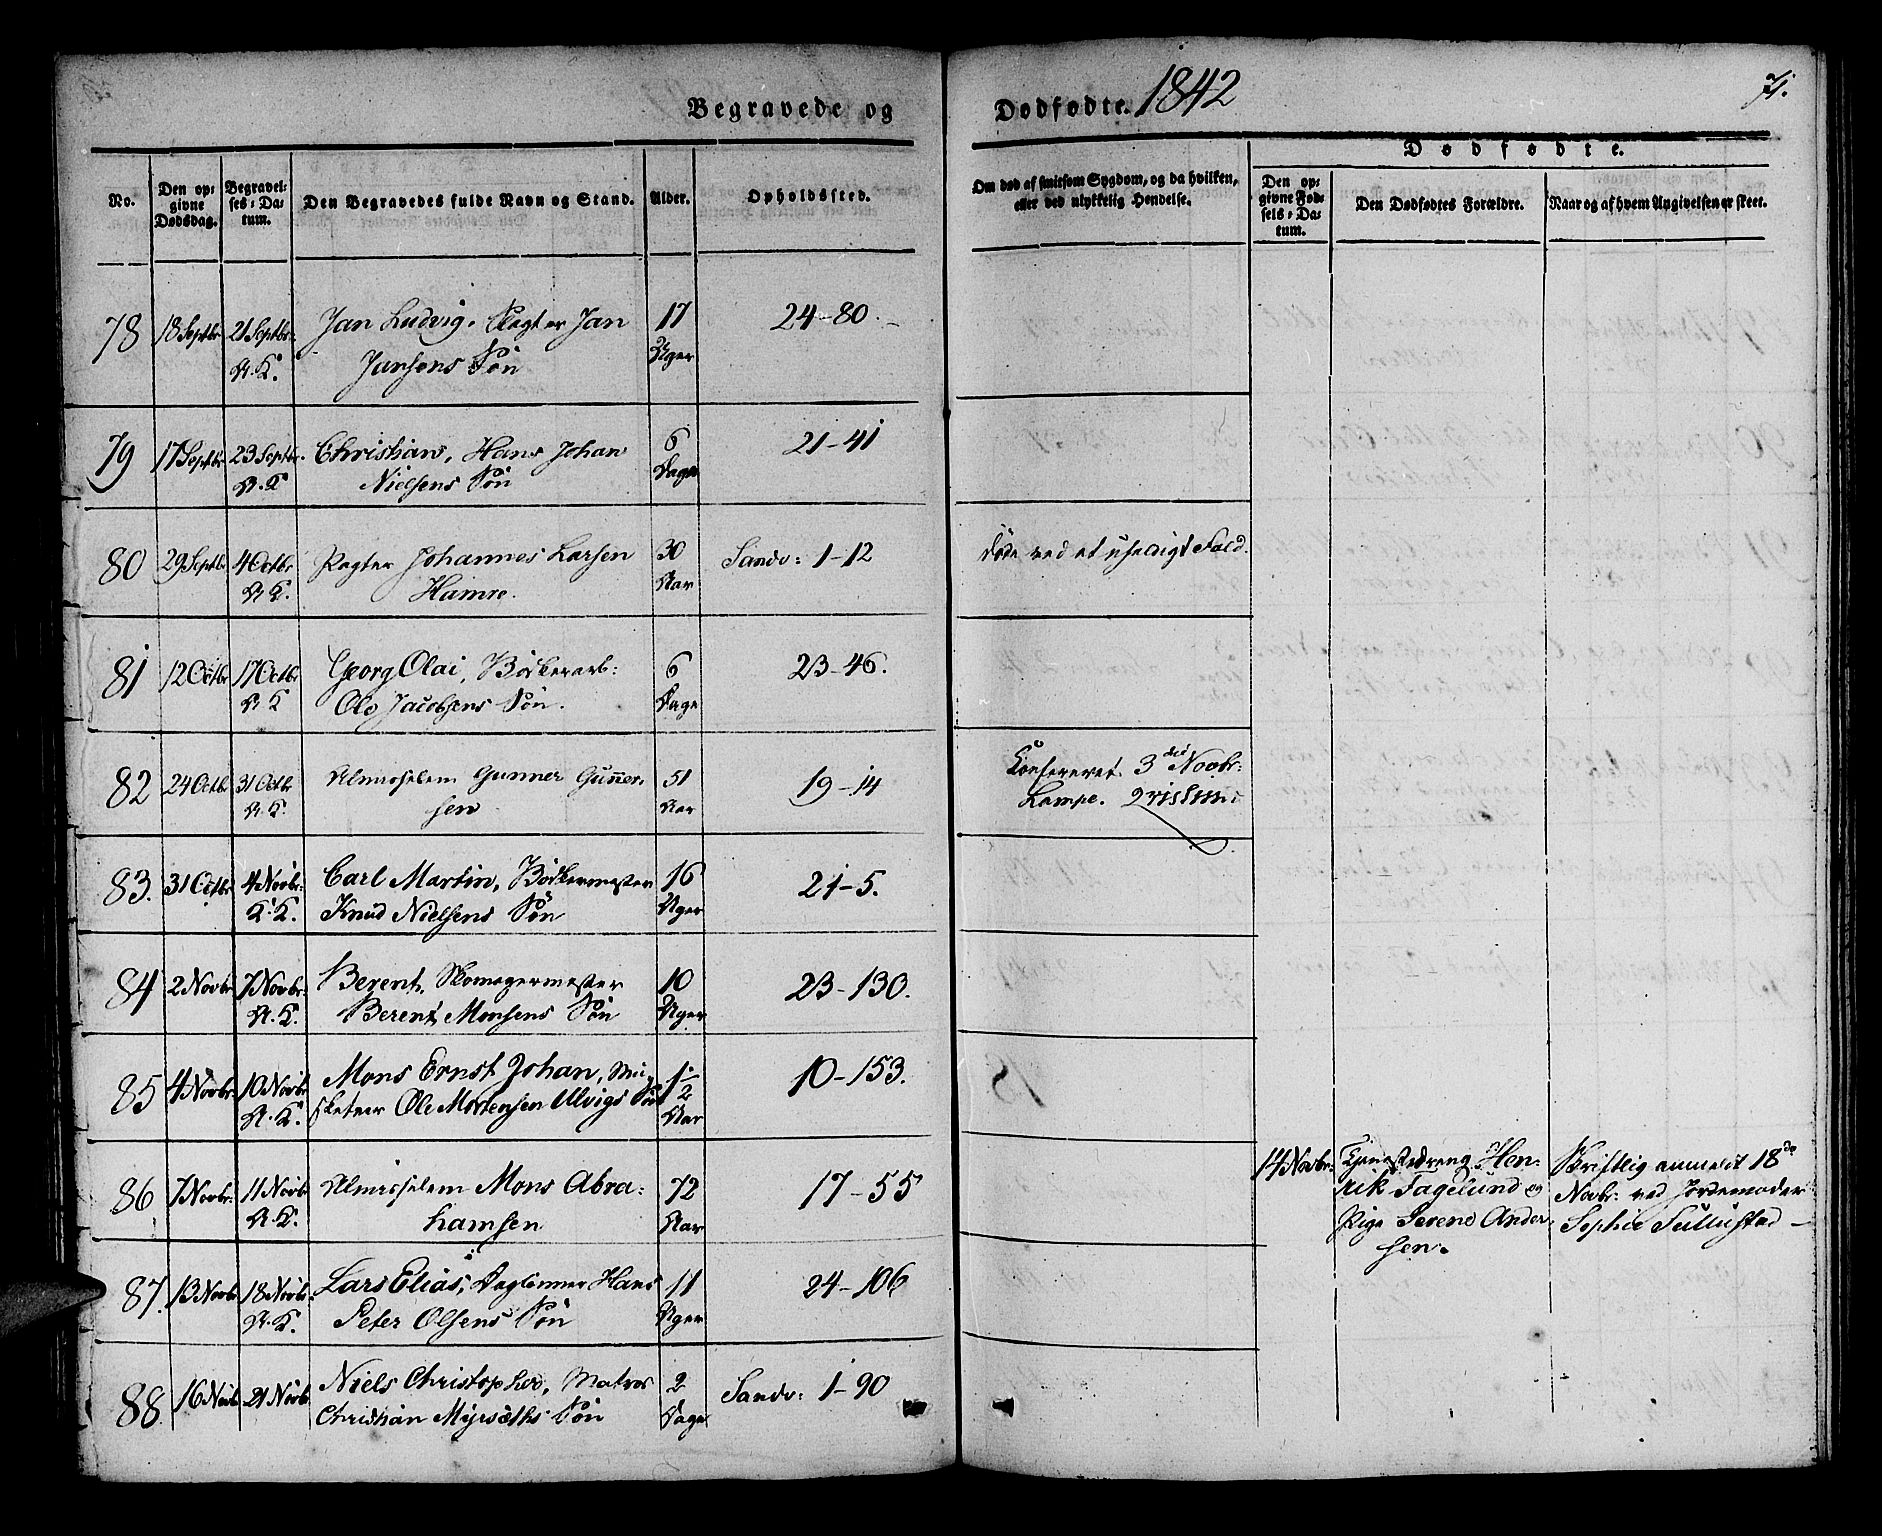 Begravede og
Dødfødte. 1842
71.
No.
Den op=
givne
Dødsdag.
Begravel=
ses=Da=
tum.
Den Begravedes fulde Navn og Stand.
Alder.
Opholdssted.
Om død af smitsom Sygdom, og da hvilken,
eller ved ulykkelig Hendelse.
Dødfødte.
Den op=
givne Fød=
sels=Da=
tum.
Den Dødfødtes Forældre.
Naar og af hvem Angivelsen er skeet.
78 18 Septbr 21 Septbr: Jan Ludvig, Pagter Jan 17 24-80.
N.K. Jansens Søn Uger
79 17 Septbr 23 Septbr. Christian, Hans Johan 6 21-41
N.K Nielsens Søn Dage
80 29 Septbr 4 Octbr Pagter Johannes Larsen 30 Sandv: 1-12 Døde ved et Fald.
N K. Hamre. Aar
81 12 Octbr 17 Octbr Georg Olai, Bødkerarb: 6 23-46.
N K Ole Jacobsens Søn. Dage
82 24 Octbr 31 Octbr Almisselem Gunner Gunner- 51 19-14 Confereret 3die Novbr:
N.K. sen Aar Lampe.
83. 31 Octbr 4 Novbr: Carl Martin, Bødkermester 16 21-5.
K.K. Knud Nielsens Søn Uger
84 2 Novbr 7 Novbr: Berent, Skomagermester 10 23-130.
N.K. Berent Monsens Søn Uger
85 4 Novbr: 10 Novbr Mons Ernst Johan, Mu- 1 1/2 10-153.
N.K. sketeer Ole Mortensen Ulvigs Søn Aar
86 7 Novbr: 11 Novbr Almisselem Mons Abra= 72 17-55
N.K. hamsen Aar
14 Novbr: Tjenestedreng Hen-
rik Fagelund og
Pige Serene Ander-
sen.
Skriftlig anmeldt 18de
Novbr: ved Jordemoder
Sophie
87. 13 Novbr 18 Novbr: Lars Elias, Daglønner Hans 11 24-106
N.K. Peter Olsens Søn Uger
88 16 Novb 21 Novbr Niels Christopher, Matros 2 Sandv: 1-90
Christian Myrsæths Søn Dage